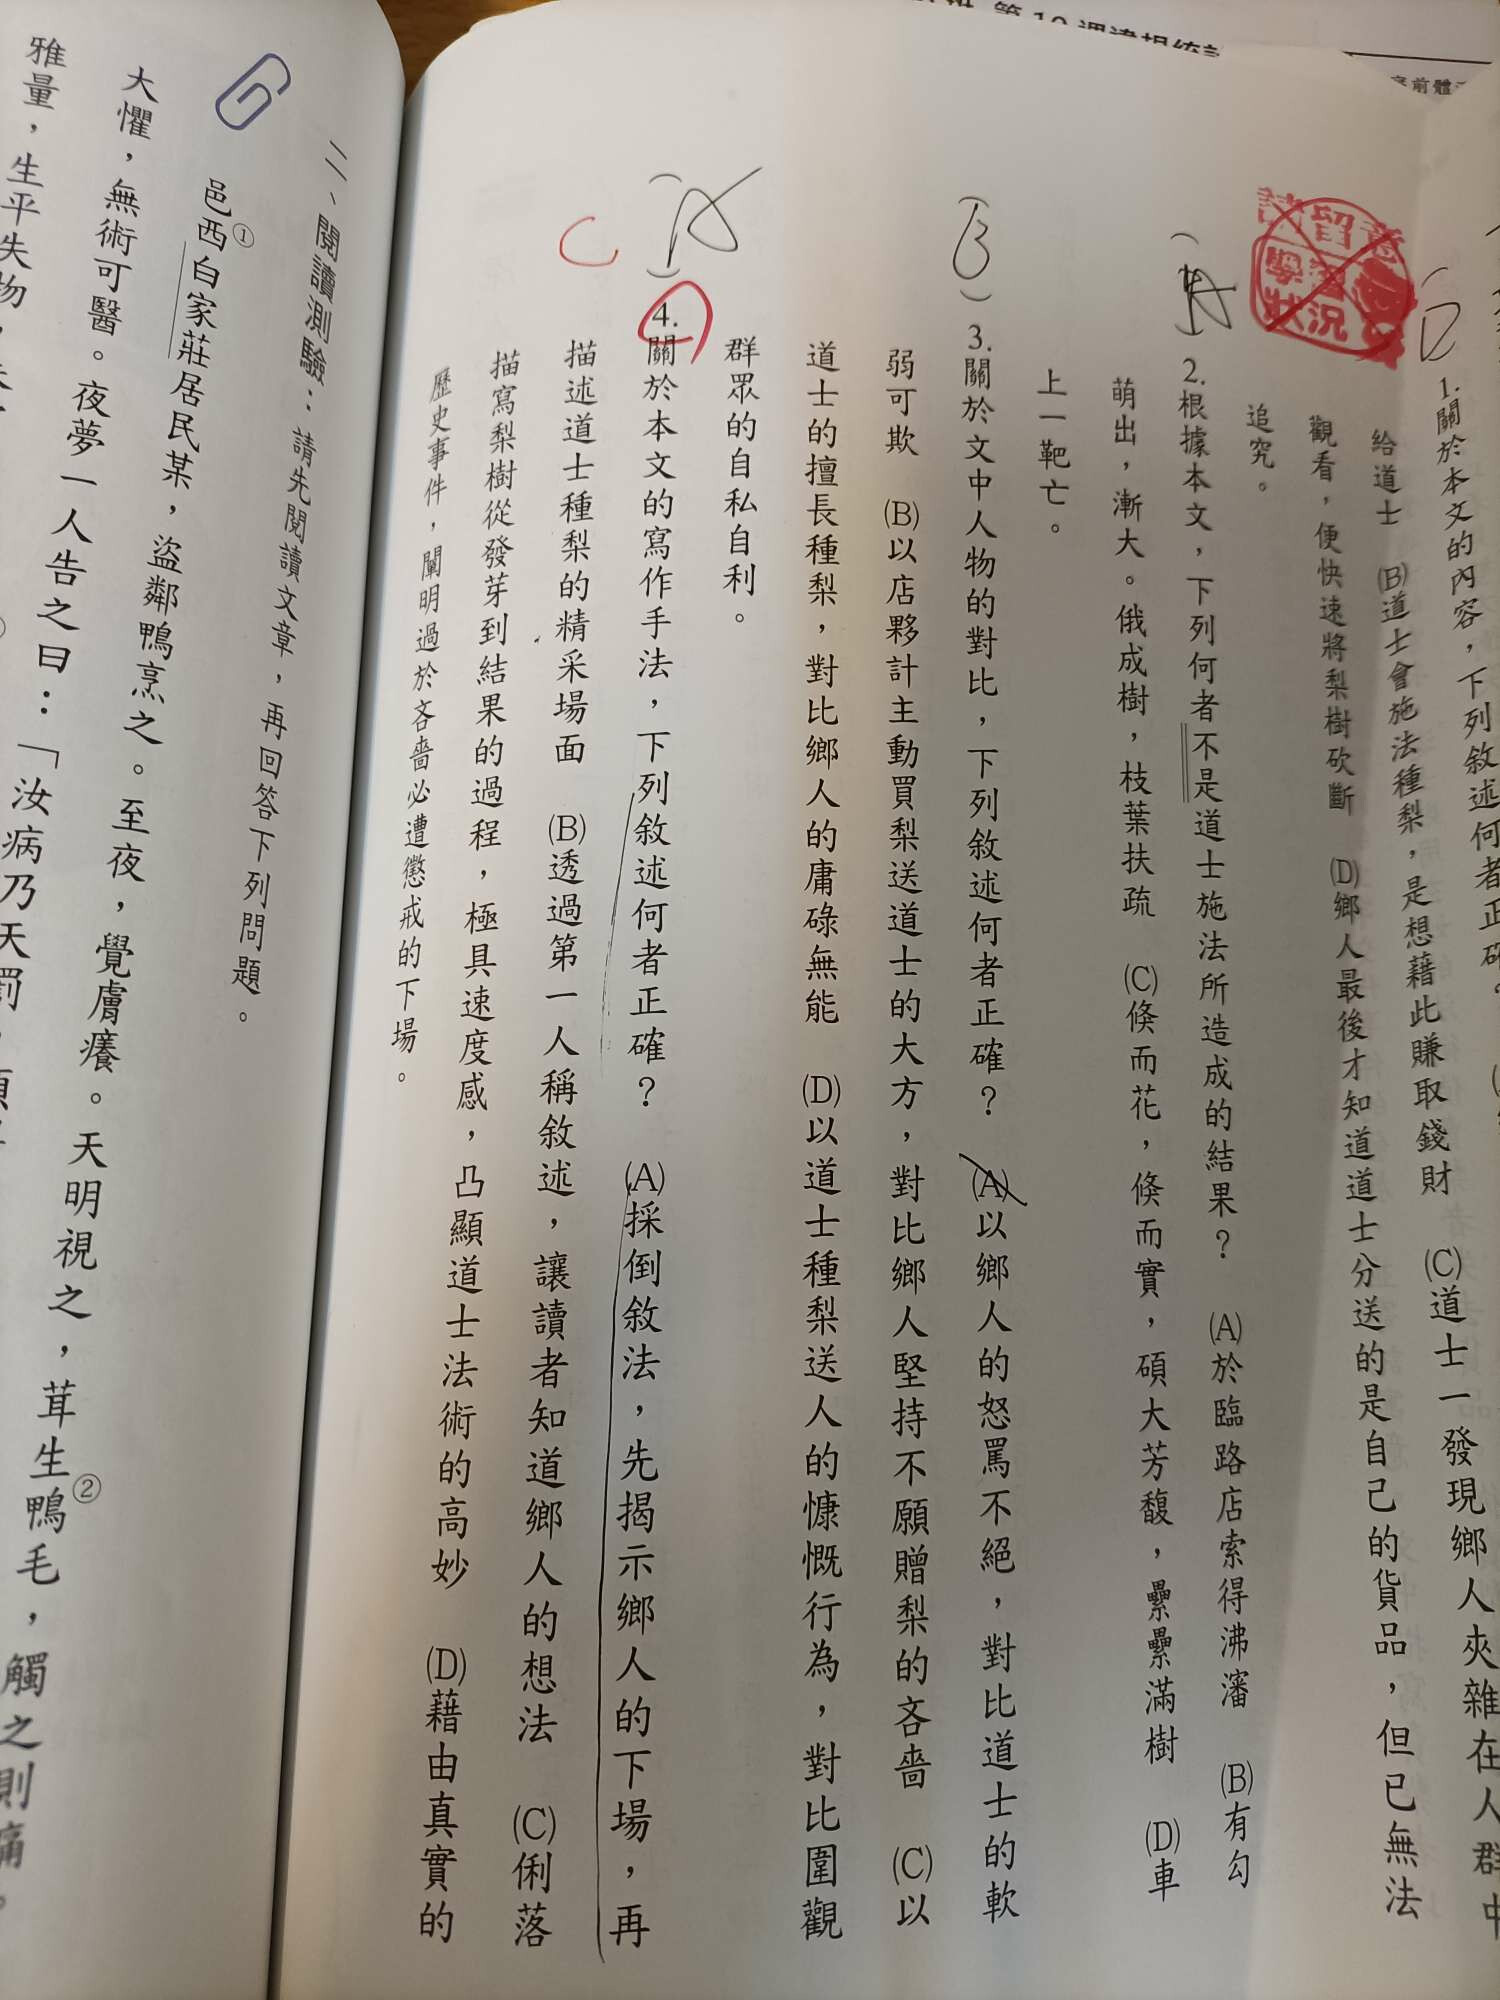 第10週違規統計
庭前體
請留意
學習
狀況
D
1.關於本文的內容，下列敘述何者正確？
給道士 (B)道士會施法種梨，是想藉此賺取錢財 (C)道士一發現鄉人夾雜在人群中
觀看，便快速將梨樹砍斷 (D)鄉人最後才知道道士分送的是自己的貨品，但已無法
追究。
(A)
2.根據本文，下列何者不是道士施法所造成的結果？ (A)於臨路店索得沸瀋 (B)有勾
萌出，漸大。俄成樹，枝葉扶疏 (C)倏而花，倏而實，碩大芳馥，纍纍滿樹 (D)車
上一靶亡。
(B)
3.關於文中人物的對比，下列敘述何者正確？ (A)以鄉人的怒罵不絕，對比道士的軟
弱可欺 (B)以店夥計主動買梨送道士的大方，對比鄉人堅持不願贈梨的吝嗇 (C)以
道士的擅長種梨，對比鄉人的庸碌無能 (D)以道士種梨送人的慷慨行為，對比圍觀
群眾的自私自利。
(A)
C
4.關於本文的寫作手法，下列敘述何者正確？ (A)採倒敘法，先揭示鄉人的下場，再
描述道士種梨的精采場面 (B)透過第一人稱敘述，讓讀者知道鄉人的想法 (C)俐落
描寫梨樹從發芽到結果的過程，極具速度感，凸顯道士法術的高妙 (D)藉由真實的
歷史事件，闡明過於吝嗇必遭懲戒的下場。
二、閱讀測驗：請先閱讀文章，再回答下列問題。
邑西白家莊①居民某，盜鄰鴨烹之。至夜，覺膚癢。天明視之，茸生鴨毛②，觸之則痛。
大懼，無術可醫。夜夢一人告之曰：「汝病乃天罰，
雅量，生平失物，